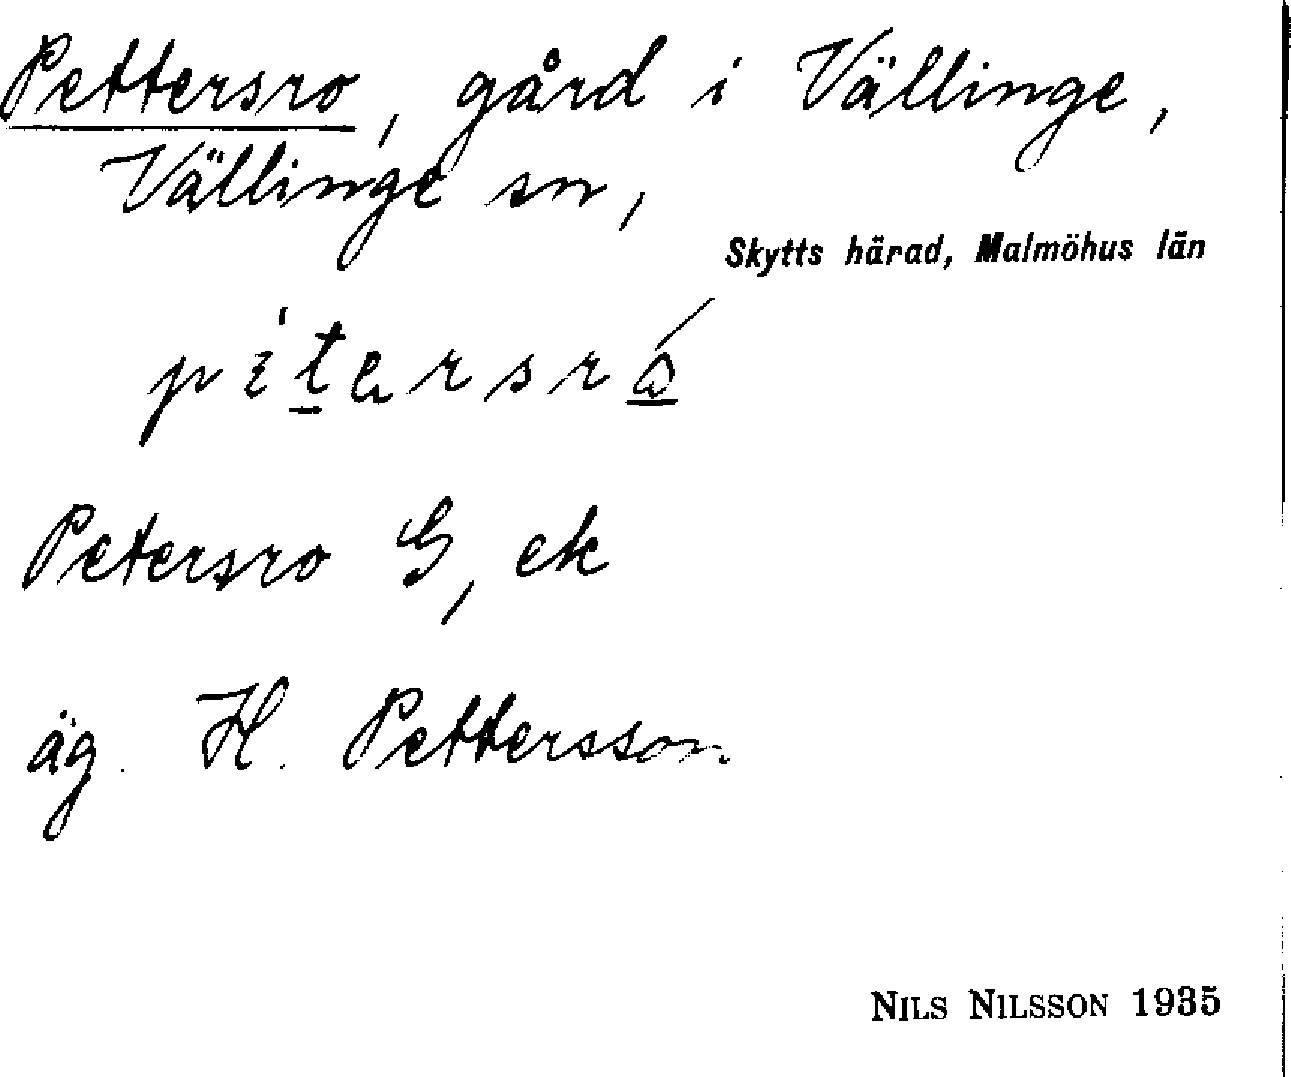 Pettersro, gård i Vällinge,
Vällinge sn,
Skytts härad, Malmöhus län
Petersro G, ek
äg. H. Pettersson.
NILS NILSSON 1935